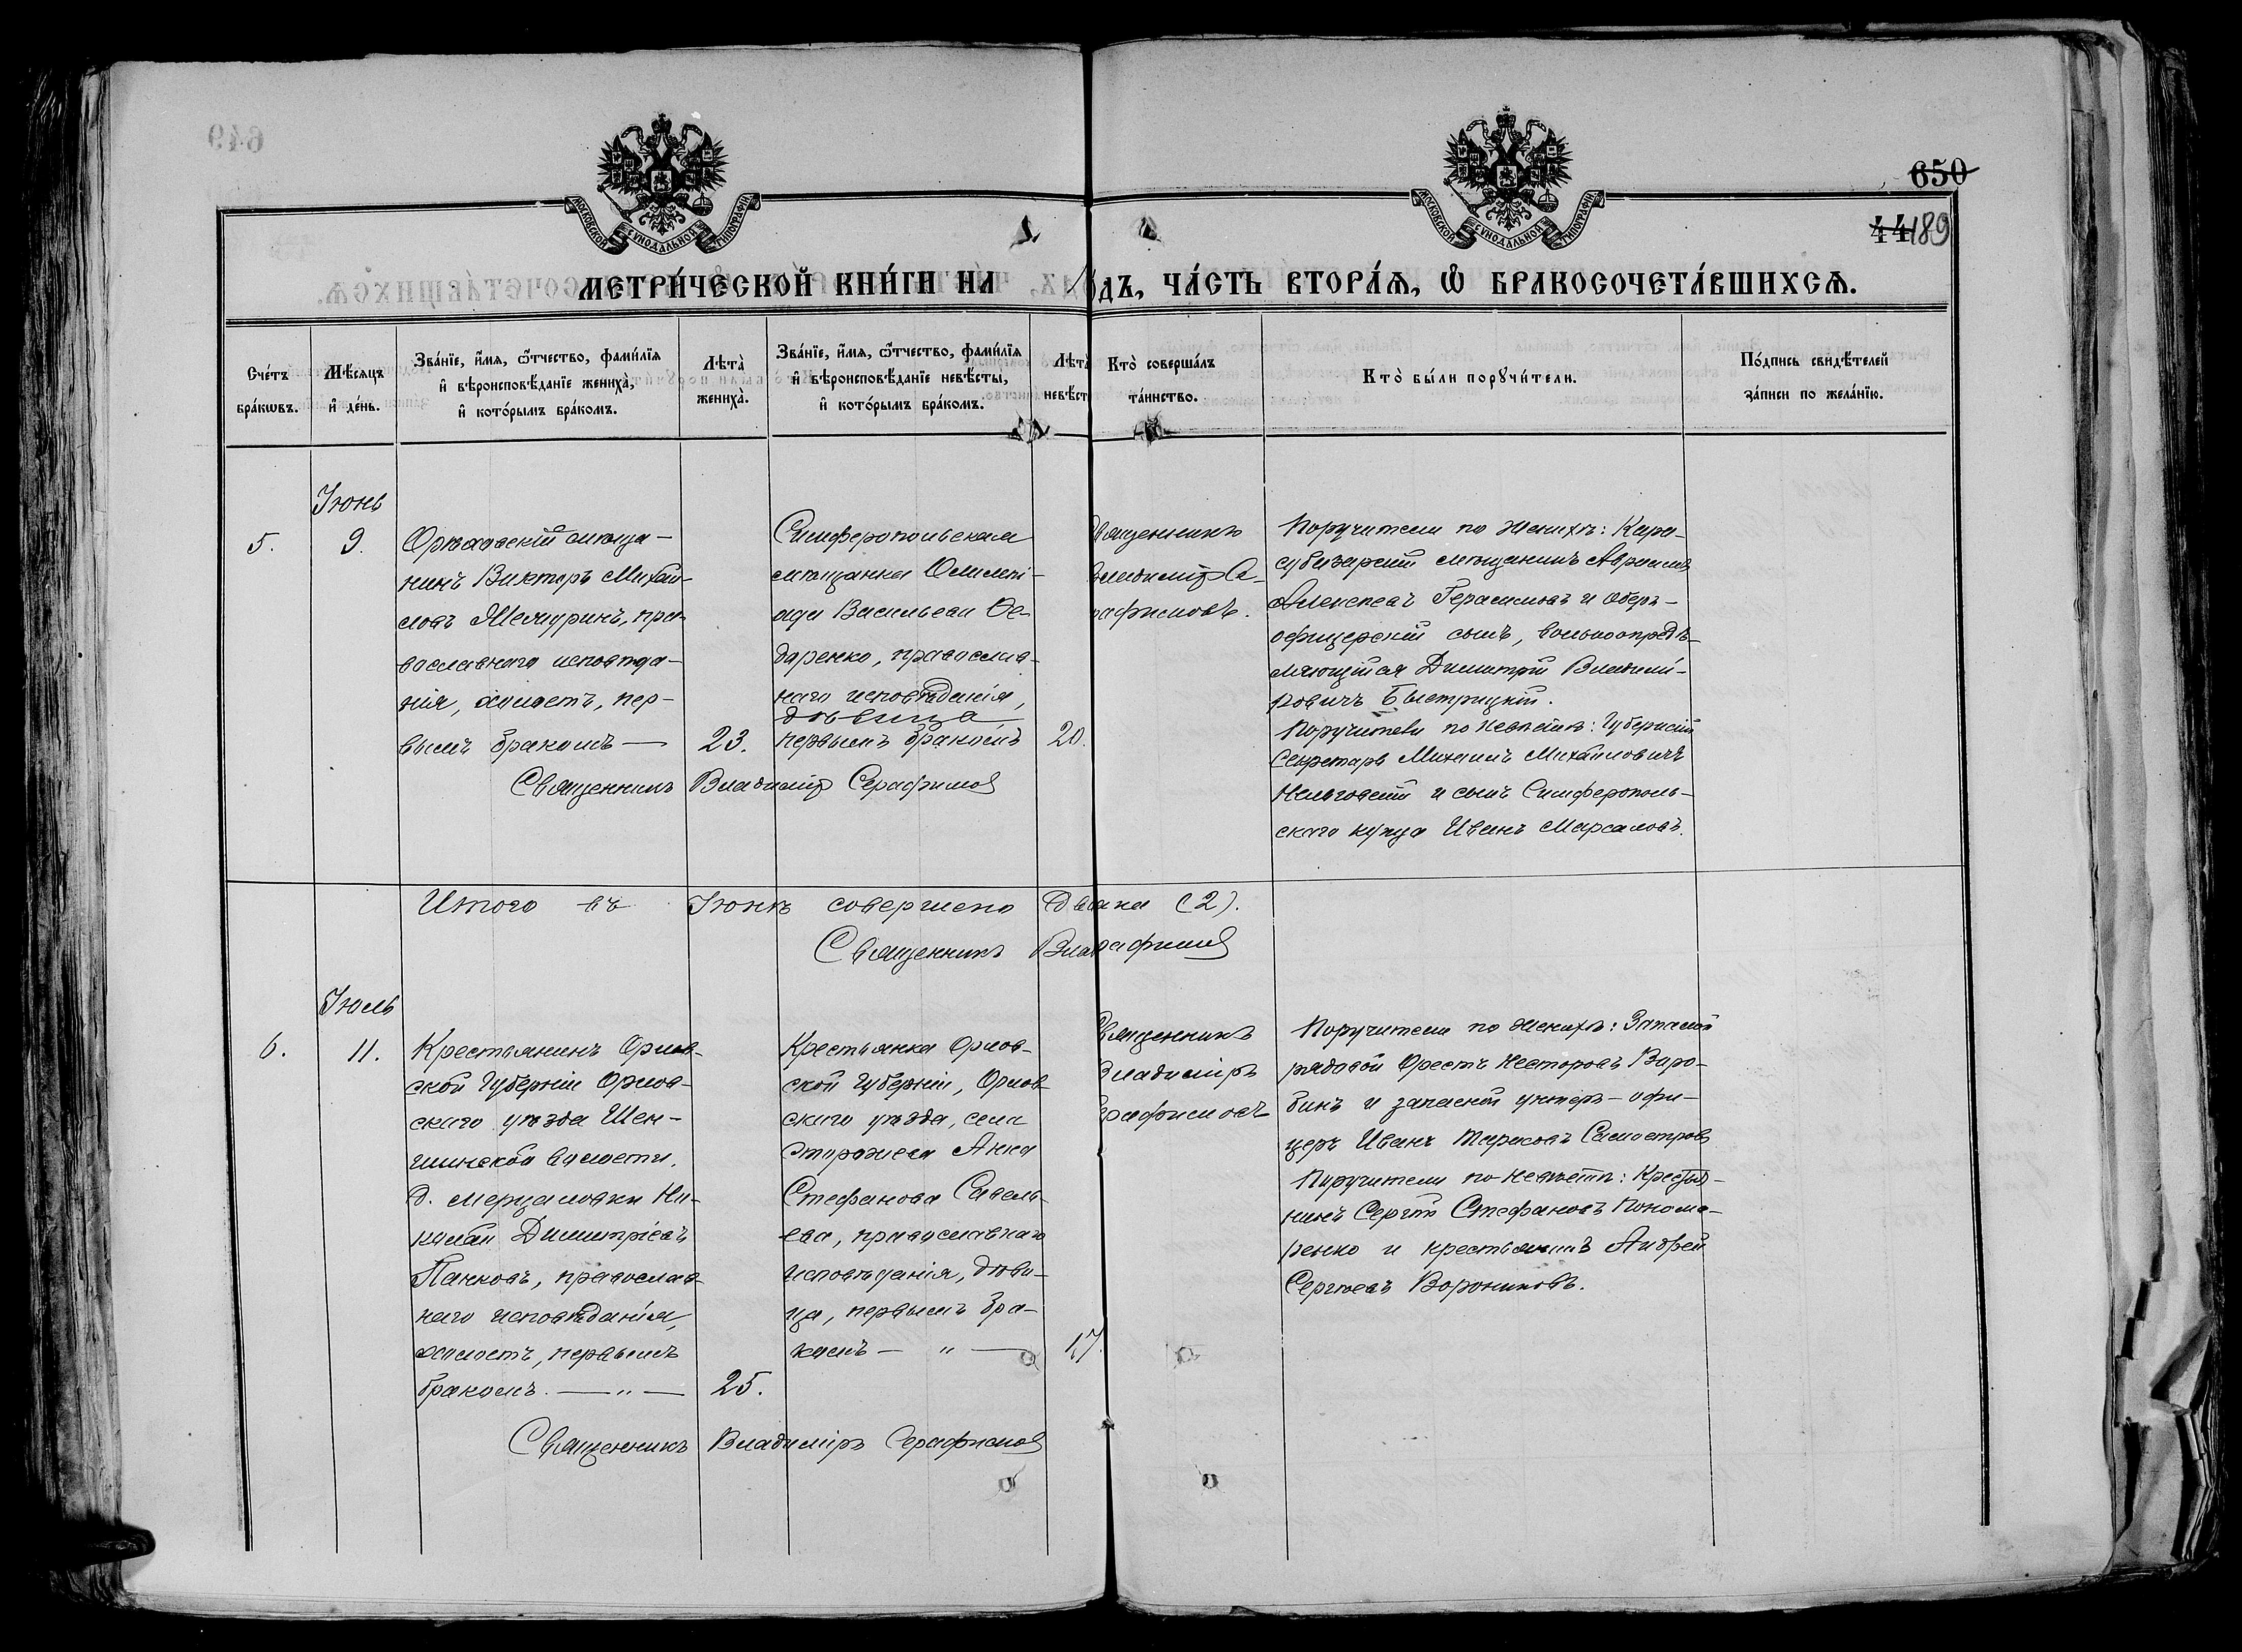 650
44 189
МОСКОВСКОЙ СУНОДАЛЬНОЙ ТИПОГРАФІИ
МОСКОВСКОЙ СУНОДАЛЬНОЙ ТИПОГРАФІИ
МЕТРИ́ЧЕСКОЙ КНИ́ГИ НА
ДЪ, ЧА́СТЬ ВТОРА́Ѧ, Ѡ҆ БРАКОСОЧЕТА́ВШИХСѦ.
Сче́тъ
бра́кѡвъ.
Мѣ́сѧцъ
и҆ де́нь.
Зва́нїе, и҆́мѧ, ѻ҆́тчество, фами́лїѧ
и҆ вѣроисповѣ́данїе жениха̀,
и҆ кото́рымъ бра́комъ.
Лѣта̀
жениха̀.
Зва́нїе, и҆́мѧ, ѻ҆́тчество, фами́лїѧ
и҆ вѣроисповѣ́данїе невѣ́сты,
и҆ кото́рымъ бра́комъ.
Лѣта̀
невѣ́ст
Кто̀ соверша́лъ
та́инство.
Кто̀ бы́ли порꙋчи́тели.
По́дпись свидѣ́телей
за́писи по жела́нїю.
Іюнь
5.
9.
Орѣховскій мѣща-
нинъ Викторъ Михай-
ловъ Шемуринъ, пра-
вославнаго исповѣда-
нія, холостъ, пер-
вымъ бракомъ —
23.
Симферопольская
мѣщанка Олимпі-
ада Васильева Ѳе-
доренко, православ-
наго исповѣданія,
дѣвица
первымъ бракомъ
20.
Священникъ
Владиміръ Се-
рафимовъ.
Поручители по женихѣ: Кара-
субазарскій мѣщанинъ Авраамъ
Алексѣевъ Герасимовъ и оберъ-
офицерскій сынъ, вольноопредѣ-
ляющійся Димитрій Владимі-
ровичъ Быстрицкій.
Поручители по невѣстѣ: Губернскій
Секретарь Михаилъ Михайловичъ
и сынъ Симферополь-
скаго купца Иванъ Марсаловъ.
Священникъ Владиміръ Серафимовъ
Итого въ Іюнѣ совершено два (2).
Священникъ Вла рафимовъ
Іюль
6.
11.
Крестьянинъ Орлов-
ской Губерніи Орлов-
скаго уѣзда Шен-
шинской волости,
д. Мерцаловки Ни-
колай Димитріевъ
Панковъ, православ-
наго исповѣданія,
холостъ, первымъ
бракомъ. — " —
25.
Крестьянка Орлов-
ской Губерніи, Орлов-
скаго уѣзда, села
Анна
Стефанова Савель-
ева, православнаго
исповѣданія, дѣви-
ца, первымъ бра-
комъ — " —
17.
Священникъ
Владиміръ
Серафимовъ
Поручители по женихѣ: Запасной
рядовой Орестъ Несторовъ Варо-
бинъ и запасной унтеръ-офи-
церъ Иванъ Тарасовъ Самостровъ
Поручители по невѣстѣ: Крестья-
нинъ Сергѣй Стефановъ Понома-
ренко и крестьянинъ Андрей
Сергѣевъ Ворониковъ.
Священникъ Владиміръ Серафимовъ